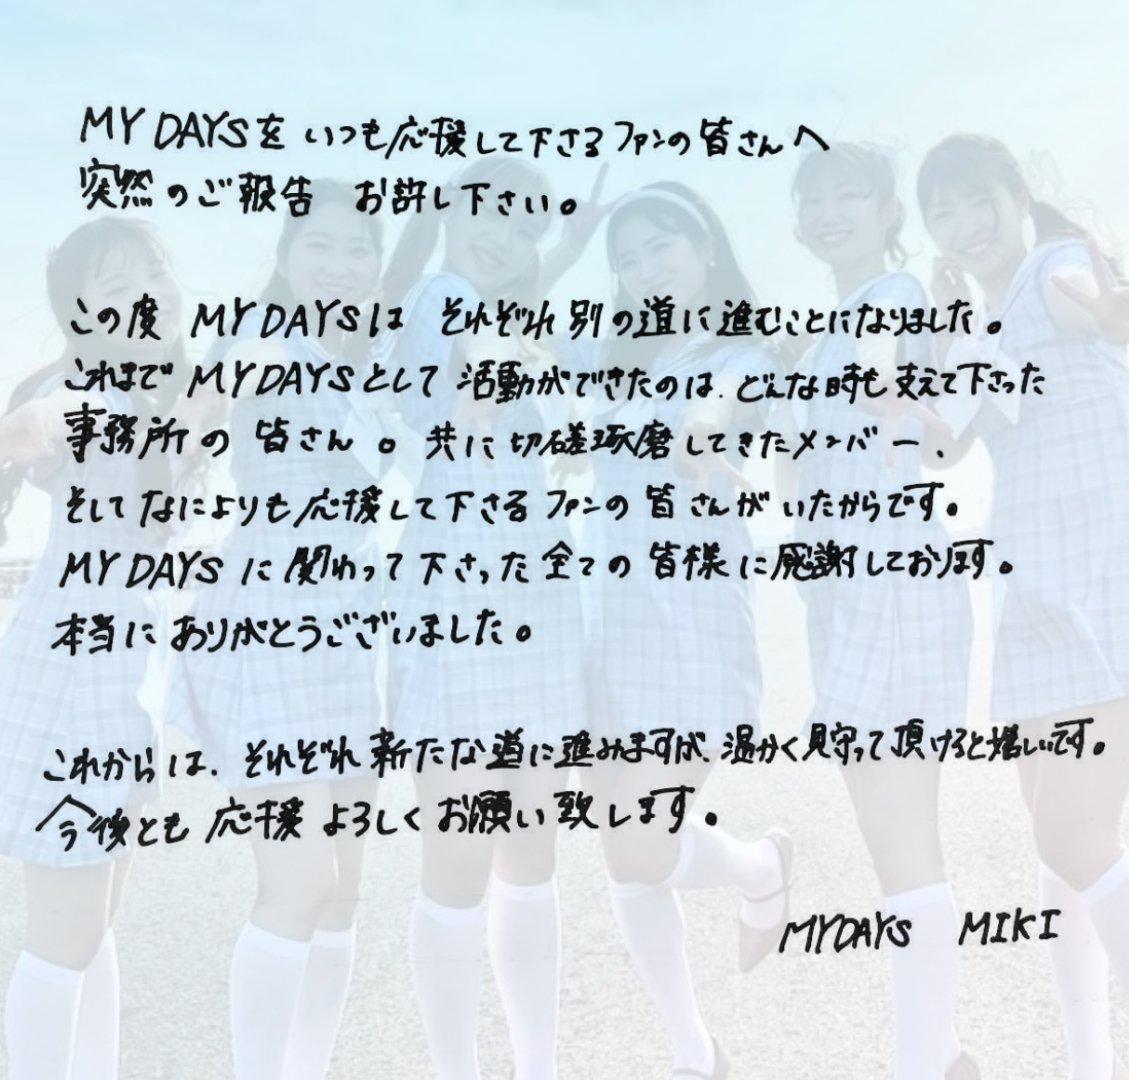 MY DAYSを いつも応援して下さるファンの皆さんへ
突然のご報告 お許し下さい。
この度 MY DAYSは それぞれ別の道に進むことになりました。
これまで MY DAYSとして 活動ができたのは、どんな時も支えて下さった
事務所の皆さん。共に切磋琢磨してきたメンバー、
そしてなによりも応援して下さるファンの皆さんがいたからです。
MY DAYSに関わって下さった全ての皆様に感謝しております。
本当にありがとうございました。
これからは、それぞれ新たな道に進みますが、温かく見守って頂けると嬉しいです。
今後とも応援よろしくお願い致します。
MYDAYS MIKI